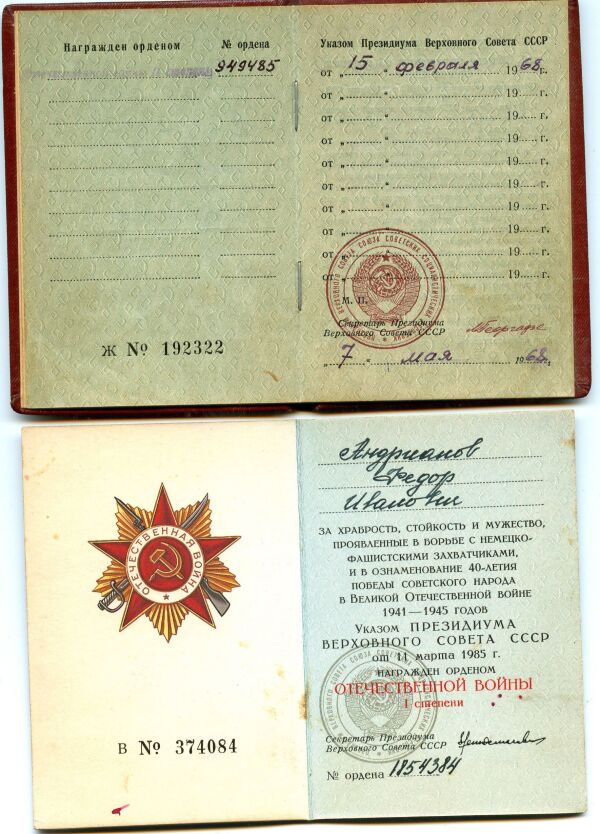 Награжден орденом № ордена
Отечественной войны II степени 949485
Указом Президиума Верховного Совета СССР
от „ 15 “ февраля 1968 г.
от „ “ 19 г.
от „ “ 19 г.
от „ “ 19 г.
от „ “ 19 г.
от „ “ 19 г.
от „ “ 19 г.
от „ “ 19 г.
от „ “ 19 г.
от „ “ 19 г.
М. П.
Секретарь Президиума
Верховного Совета СССР
„ 7 “ мая 1968 г.
Ж № 192322
ОТЕЧЕСТВЕННАЯ ВОЙНА
В № 374084
Андрианов
Федор
Иванович
ЗА ХРАБРОСТЬ, СТОЙКОСТЬ И МУЖЕСТВО,
ПРОЯВЛЕННЫЕ В БОРЬБЕ С НЕМЕЦКО-
ФАШИСТСКИМИ ЗАХВАТЧИКАМИ,
И В ОЗНАМЕНОВАНИЕ 40-ЛЕТИЯ
ПОБЕДЫ СОВЕТСКОГО НАРОДА
В ВЕЛИКОЙ ОТЕЧЕСТВЕННОЙ ВОЙНЕ
1941—1945 ГОДОВ
УКАЗОМ ПРЕЗИДИУМА
ВЕРХОВНОГО СОВЕТА СССР
от 11 марта 1985 г.
НАГРАЖДЕН ОРДЕНОМ
ОТЕЧЕСТВЕННОЙ ВОЙНЫ
I степени
Секретарь Президиума
Верховного Совета СССР
№ ордена 1854384